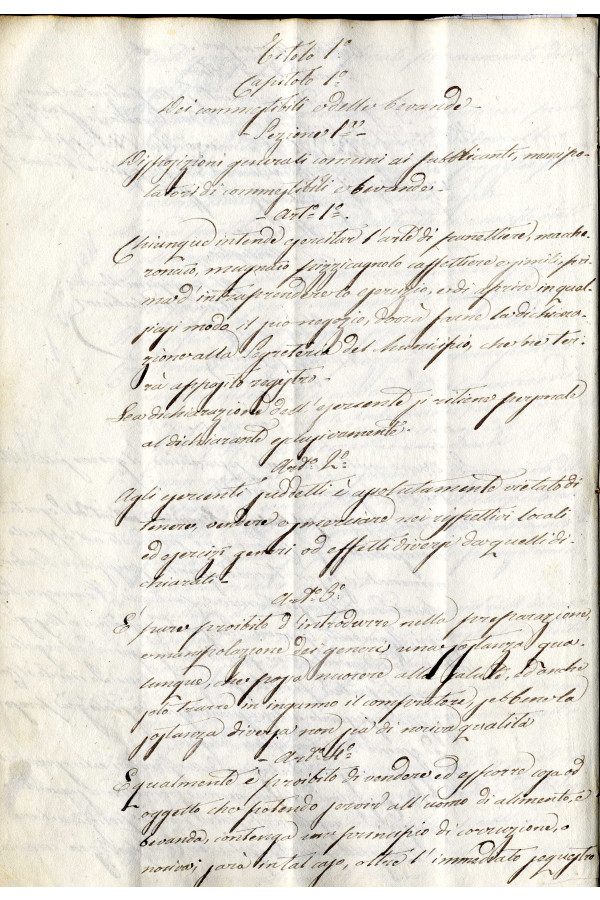 Titolo 1°
Capitolo 1°
Dei commestibili e delle bevande -
- Sezione 1ma -
Disposizioni generali comuni ai fabbricanti, manipo-
latori di commestibili e bevande -
- Art° 1° -
Chiunque intende esercitar l'arte di panettiere, macche-
ronaio, mugnaio pizzicagnolo caffettiere e simili, pri-
ma d'intraprenderne lo esercizio, e di aprire in qual-
siasi modo il suo negozio, dovrà farne la dichiara-
zione alla Segreteria del Municipio, che ne ter-
rà apposito registro -
La dichiarazione dell'esercente si ritiene personale
al dichiarante esclusivamente -
Art° 2°
Agli esercenti suddetti è assolutamente vietato di
tenere, vendere o smerciare nei rispettivi locali
ed esercizi generi od effetti diversi da quelli di-
chiarati -
Art° 3°
E' pure proibito d'introdurre nella preparazione,
e manipolazione dei generi una sostanza qua-
lunque, che possa nuocere alla salute, ed anche
solo trarre in inganno il compratore, sebbene la
sostanza diversa non sia di nociva qualità
- Art° 4°
Egualmente è proibito di vendere ed esporre cosa od
oggetto che potendo servir all'uomo di alimento, e
bevanda, contenga un principio di corruzione, o
nocivo; sarà in tal caso, oltre l'immediato sequestro